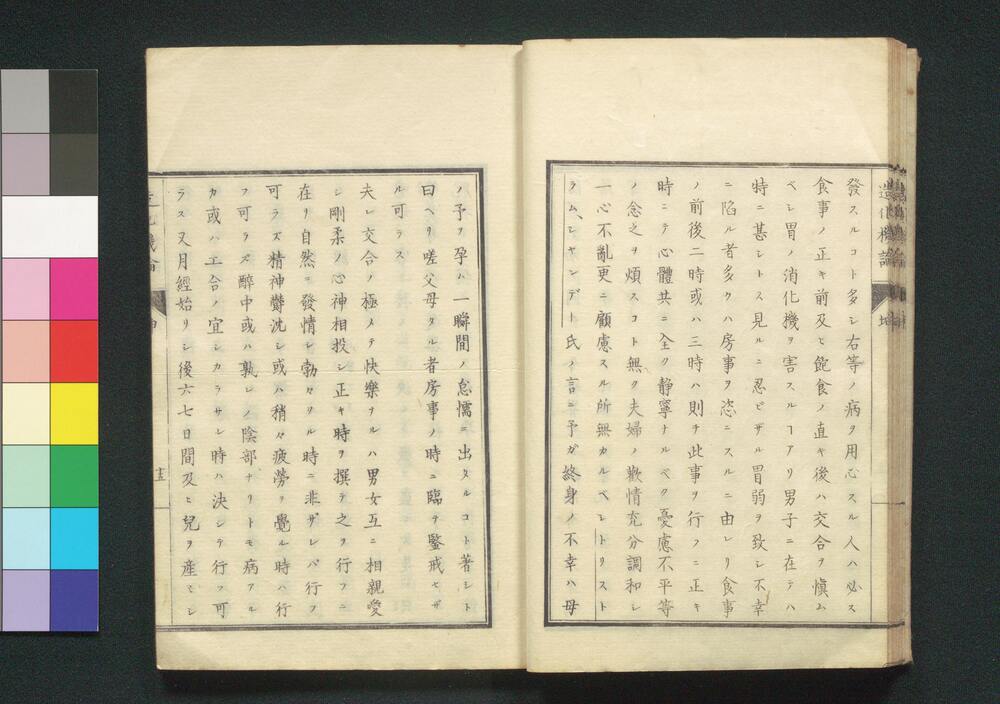 造化機論
坤
發スルコト多シ右等ノ病ヲ用心スル人ハ必ス
食事ノ正キ前及ヒ飽食ノ直キ後ハ交合ヲ愼ム
ベシ胃ノ消化機ヲ害スルヿアリ男子ニ在テハ
特ニ甚シトス見ルニ忍ビザル胃弱ヲ致シ不幸
ニ陷ル者多クハ房事ヲ恣ニスルニ由レリ食事
ノ前後二時或ハ三時ハ則チ此事ヲ行フニ正キ
時ニテ心體共ニ全ク静寧ナルベク憂慮不平等
ノ念之ヲ煩スコト無ク夫婦ノ歡情充分調和シ
一心不亂更ニ顧慮スル所無カルベシトリスト
ラム、シャンデート氏ノ言ニ予ガ終身ノ不幸ハ母
ノ予ヲ孕ム一瞬間ノ怠懦ニ出タルコト著シト
曰ヘリ嗟父母タル者房事ノ時ニ臨テ鑒戒セザ
ル可ラス
夫レ交合ノ極メテ快樂ナルハ男女互ニ相親愛
シ剛柔ノ心神相投シ正キ時ヲ撰テ之ヲ行フニ
在リ自然ニ發情シ勃々タル時ニ非ザレバ行フ
可ラズ精神欝沈シ或ハ稍々疲勞ヲ覺ル時ハ行
フ可ラズ醉中或ハ孰レノ陰部ナリトモ病アル
カ或ハ工合ノ宜シカラサレ時ハ決シテ行フ可
ラス又月經始リシ後六七日間及ヒ兒ヲ産ミシ
造化機論
坤
十五